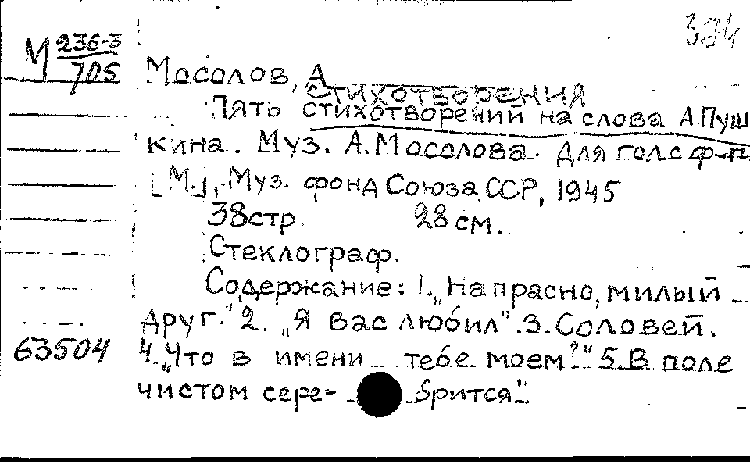 324
М 236-3
705
Мосолов, А
СТИХОТВОРЕНИЯ
Пять стихотворений на слова А.Пуш
кина. Муз. А.Мосолова. Для голс ф-п
[М.], Муз. фонд Союза ССР, 1945
38 стр. 28 см.
Стеклограф.
Содержание: 1. „Напрасно, милый
друг." 2. „Я вас любил". 3. Соловей.
63504
4. „Что в имени тебе моем?" 5. В поле
чистом сере- брится"